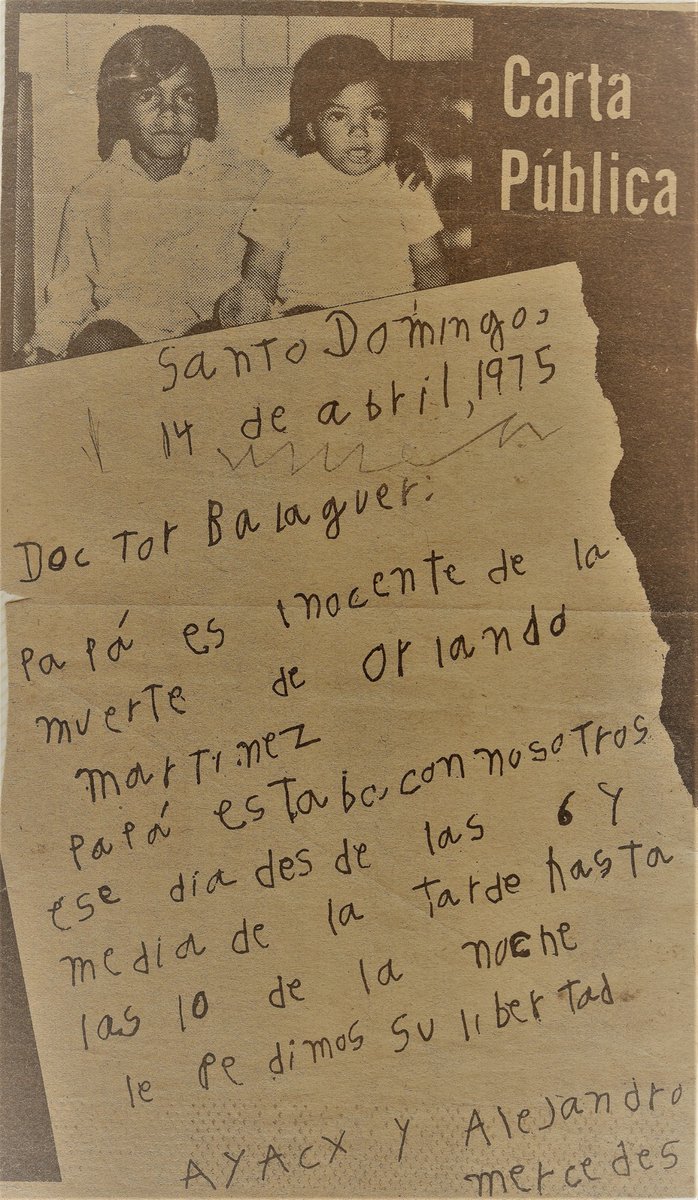 Carta
Pública
Santo Domingo,
14 de abril, 1975
Doctor Balaguer:
papá es inocente de la
muerte de Orlando
martinez
papá estaba con nosotros
ese día desde las 6 Y
media de la tarde hasta
las 10 de la noche
le pedimos su libertad
AYACX Y Alejandro
mercedes